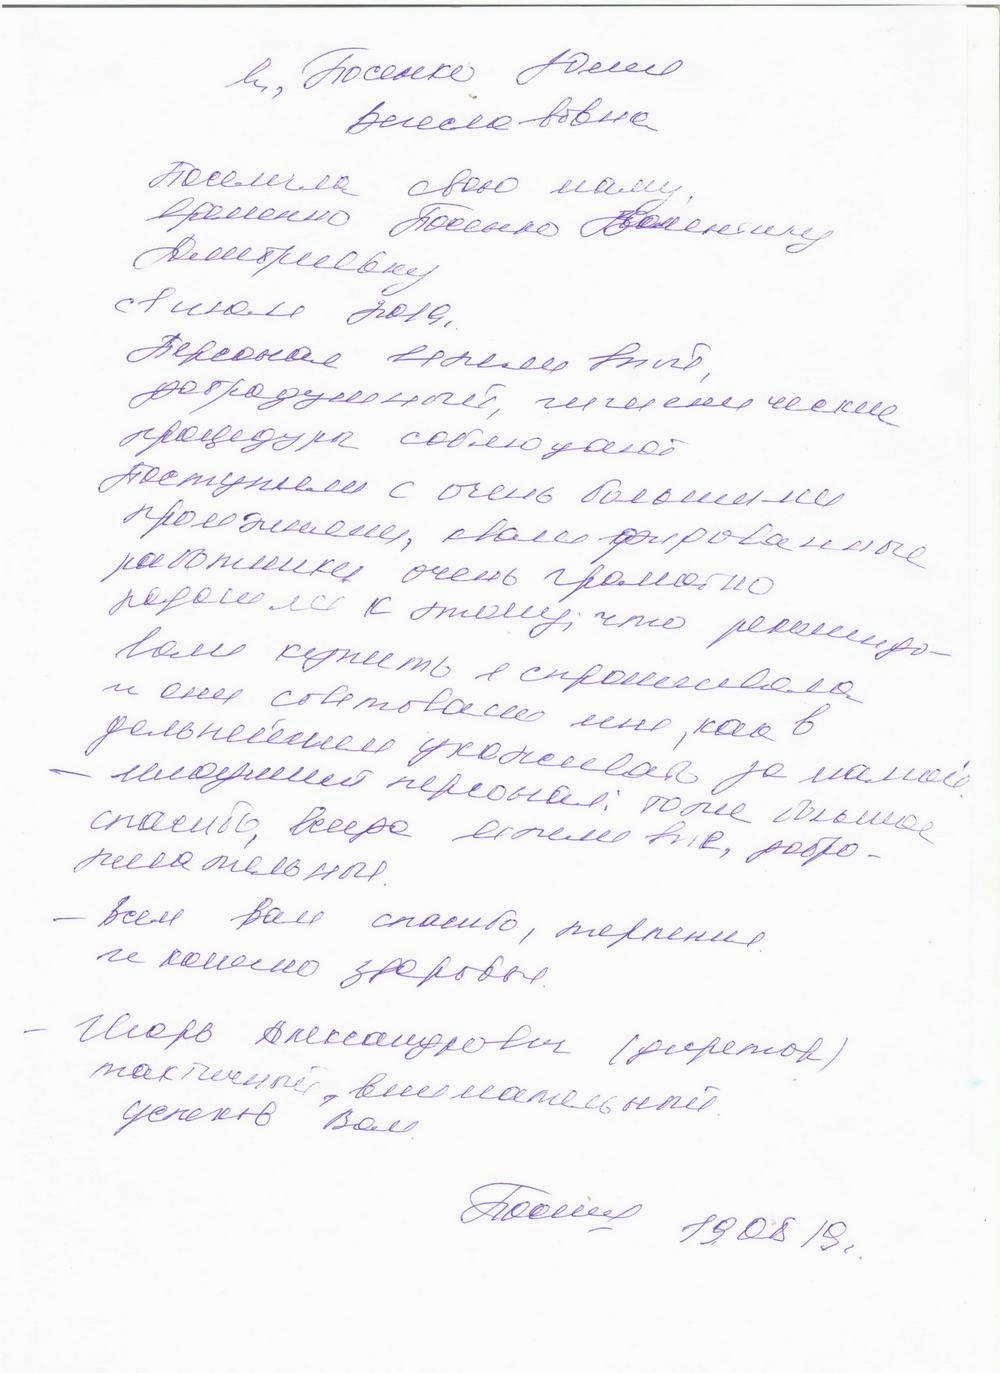 Я, Посенко Юлия
Вячеславовна
Поселила свою маму,
временно Посенко Валентину
Дмитриевну
с 1 июля 2019г.
Персонал вежливый,
добродушный, гигиенические
процедуры соблюдают
Поступили с очень большими
пролежнями, квалифицированные
работники очень грамотно
подошли к этому, что рекомендо-
вали купить я спрашивала
и они советовали мне, как в
дальнейшем ухаживать за мамой.
– младший персонал: тоже большое
спасибо, всегда вежливые, добро-
желательные.
– Всем Вам спасибо, терпения
и конечно здоровья.
– Игорь Александрович (директор)
тактичный, внимательный
успехов Вам.
19.08.19г.